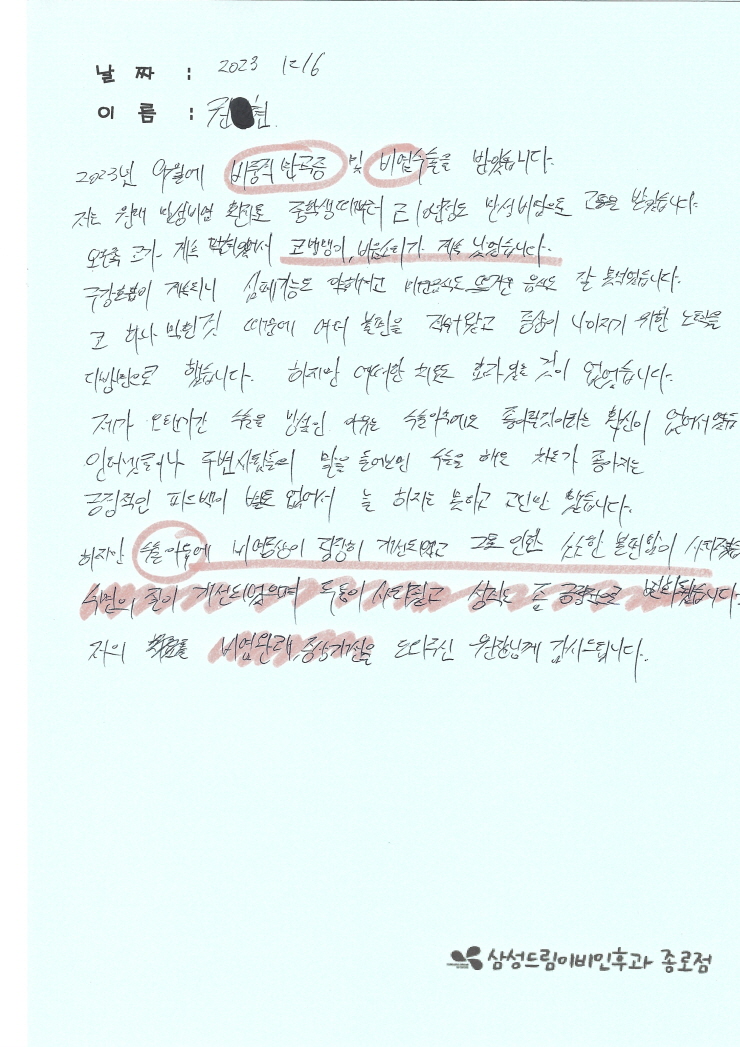 날 짜 : 2023 12/16
이 름 : 권 현
2023년 9월에 비중격 만곡증 및 비염수술을 받았습니다.
저는 원래 만성비염 환자로 중학생때부터 근 10년정도 만성비염으로 고통을 받았습니다.
오른쪽 코가 계속 막혀있어서 코맹맹이, 비음소리가 계속 났었습니다.
구강호흡이 계속되니 심폐기능도 약해지고 매운음식도 뜨거운 음식도 잘 못먹었습니다.
코 하나 막힌것 때문에 여러 불편을 겪어왔고 증상이 나아지기 위한 노력을
다방면으로 했습니다. 하지만 어떠한 치료도 효과있는 것이 없었습니다.
제가 오랜기간 수술을 망설인 이유는 수술이후에도 좋아질것이라는 확신이 없어서였습
인터넷글이나 주변사람들의 말을 들어보면 수술을 해도 차도가 좋아지는
긍정적인 피드백이 별로 없어서 늘 하지는 못하고 고민만 했습니다.
하지만 수술이후에 비염증상이 굉장히 개선되었고 그로 인한 소소한 불편함이 사라졌습
수면의 질이 개선되었으며 두통이 사라졌고 성격도 좀 긍정적으로 변화됐습니다.
저의 비염완쾌, 증상개선을 도와주신 원장님께 감사드립니다.
삼성드림이비인후과 종로점